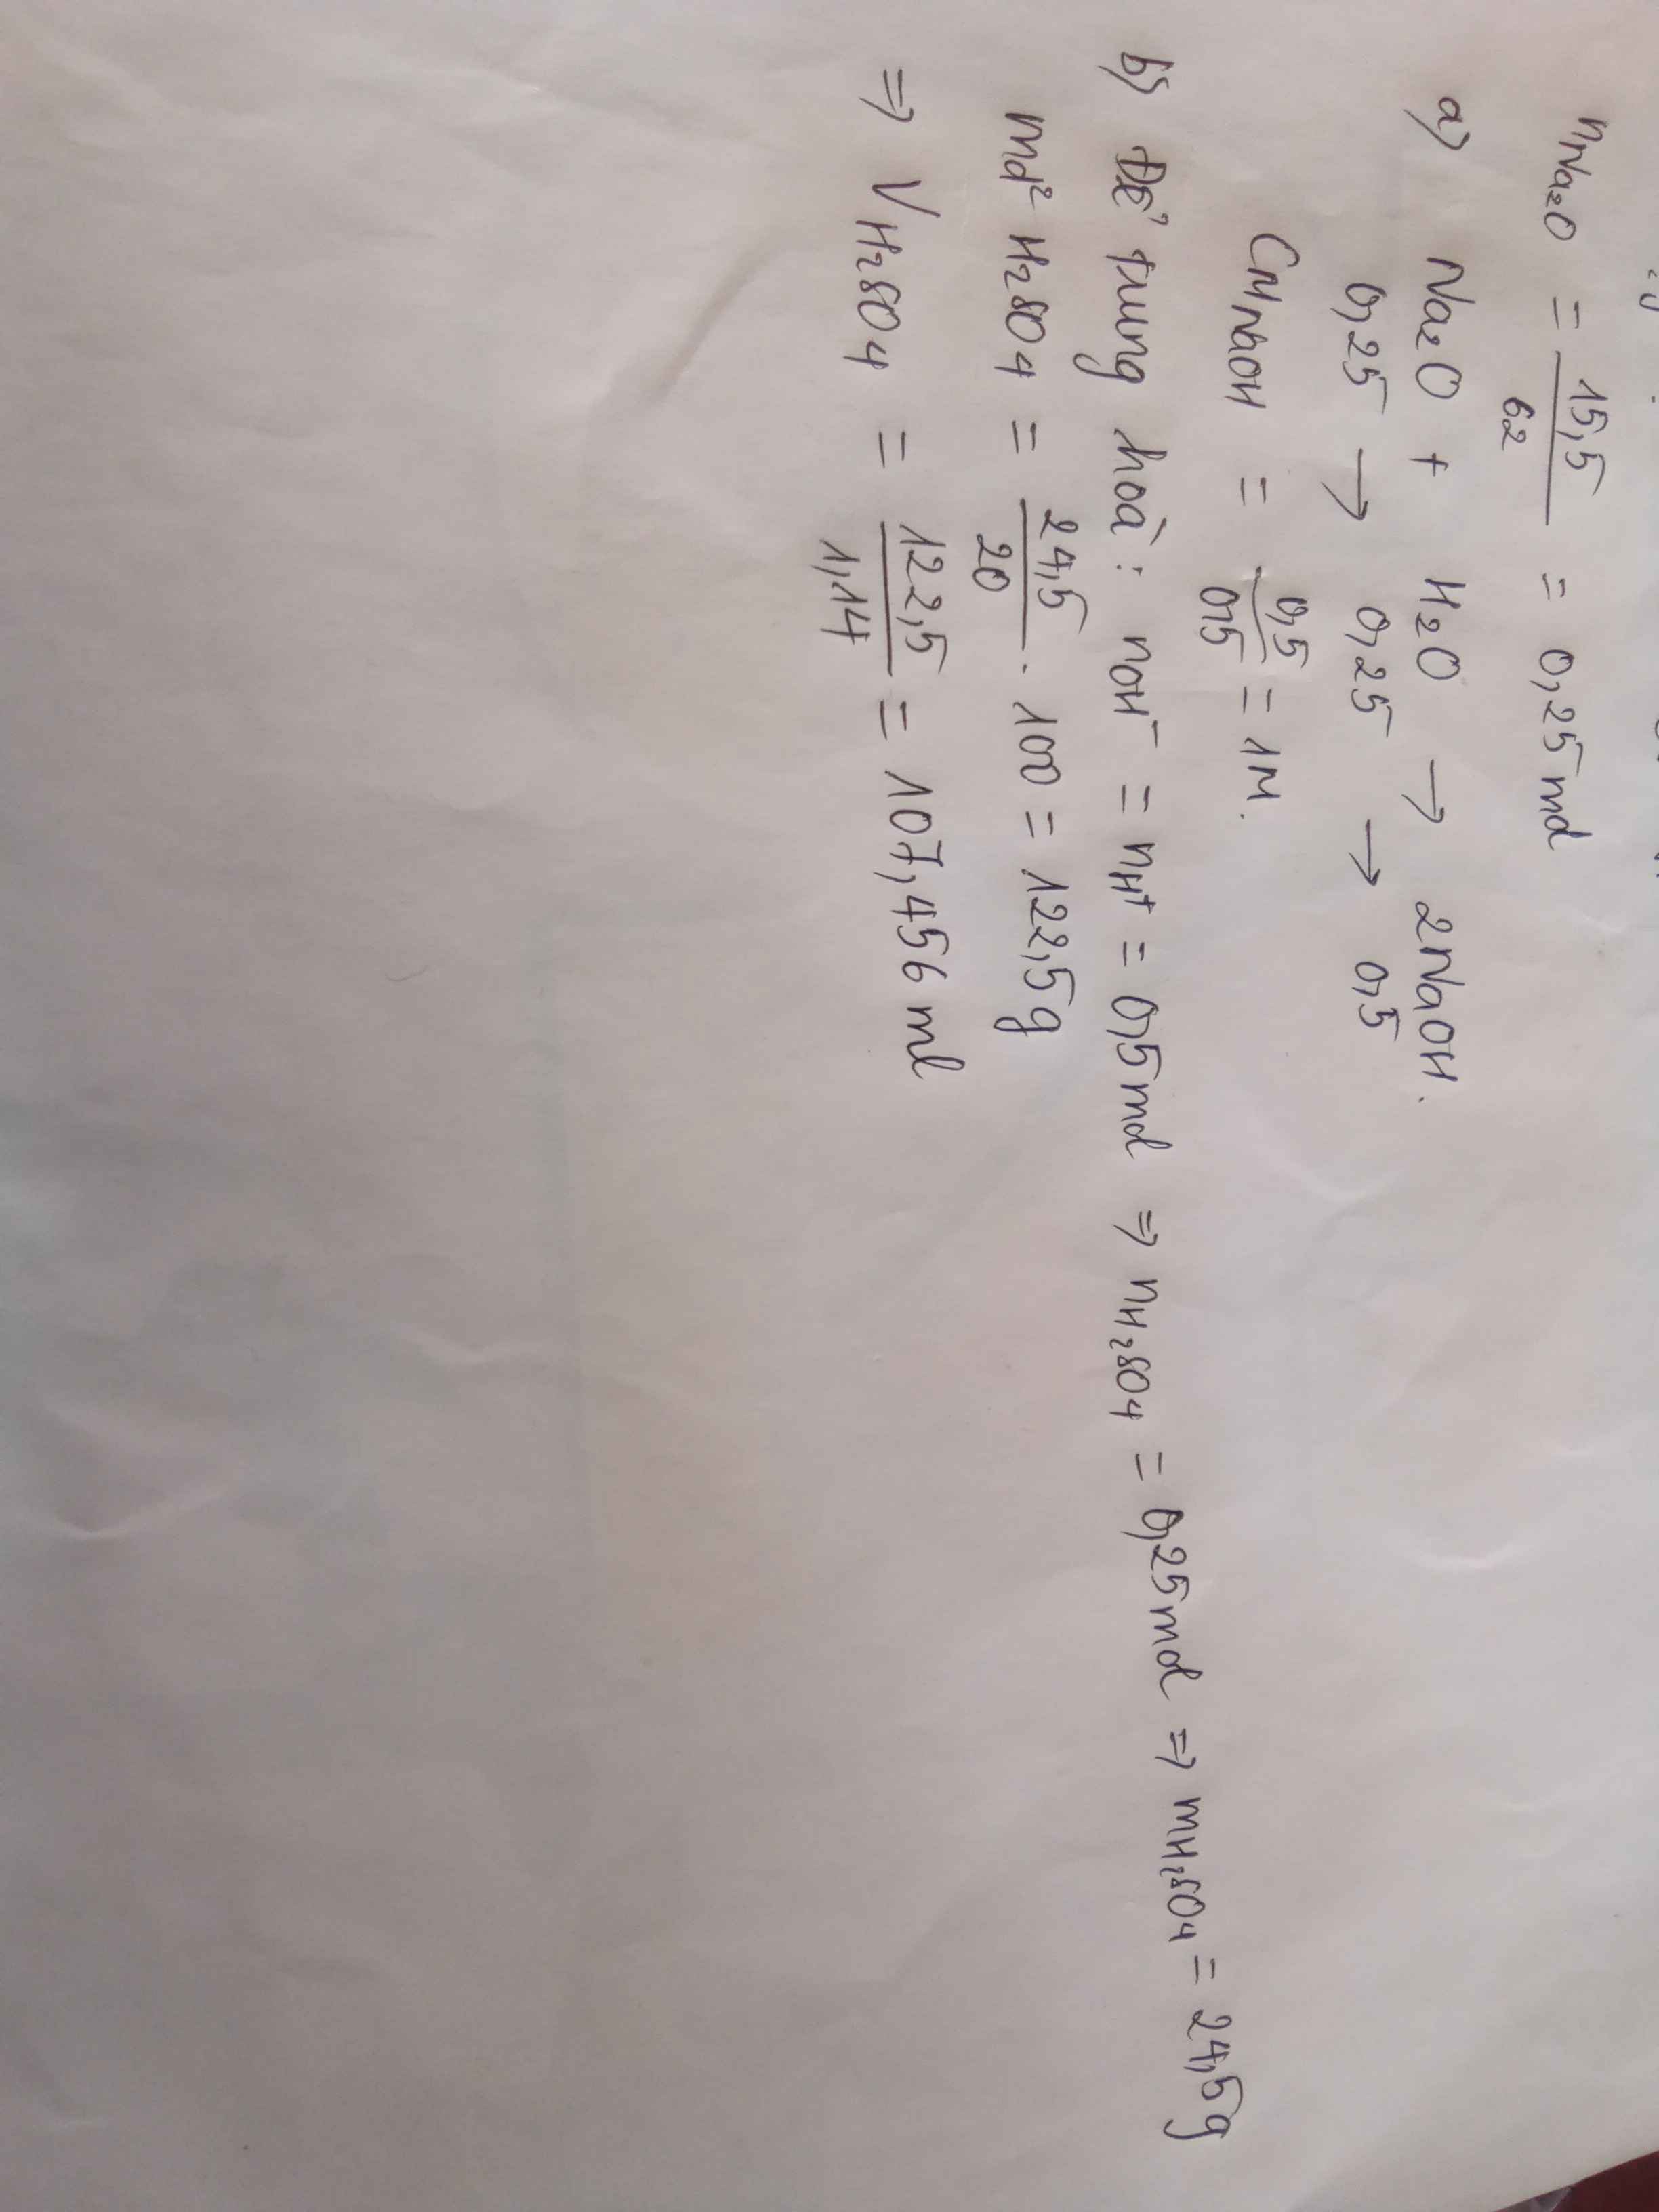 nNa₂O = 15,5 / 62 = 0,25 mol
a) Na₂O + H₂O → 2NaOH.
0,25 → 0,25 → 0,5
CM NaOH = 0,5 / 0,5 = 1M.
b) Để trung hoà: nOH⁻ = nH⁺ = 0,5 mol ⇒ nH₂SO₄ = 0,25 mol ⇒ mH₂SO₄ = 24,5g
md² H₂SO₄ = 24,5 / 20 . 100 = 122,5g
⇒ VH₂SO₄ = 122,5 / 1,14 = 107,456 ml